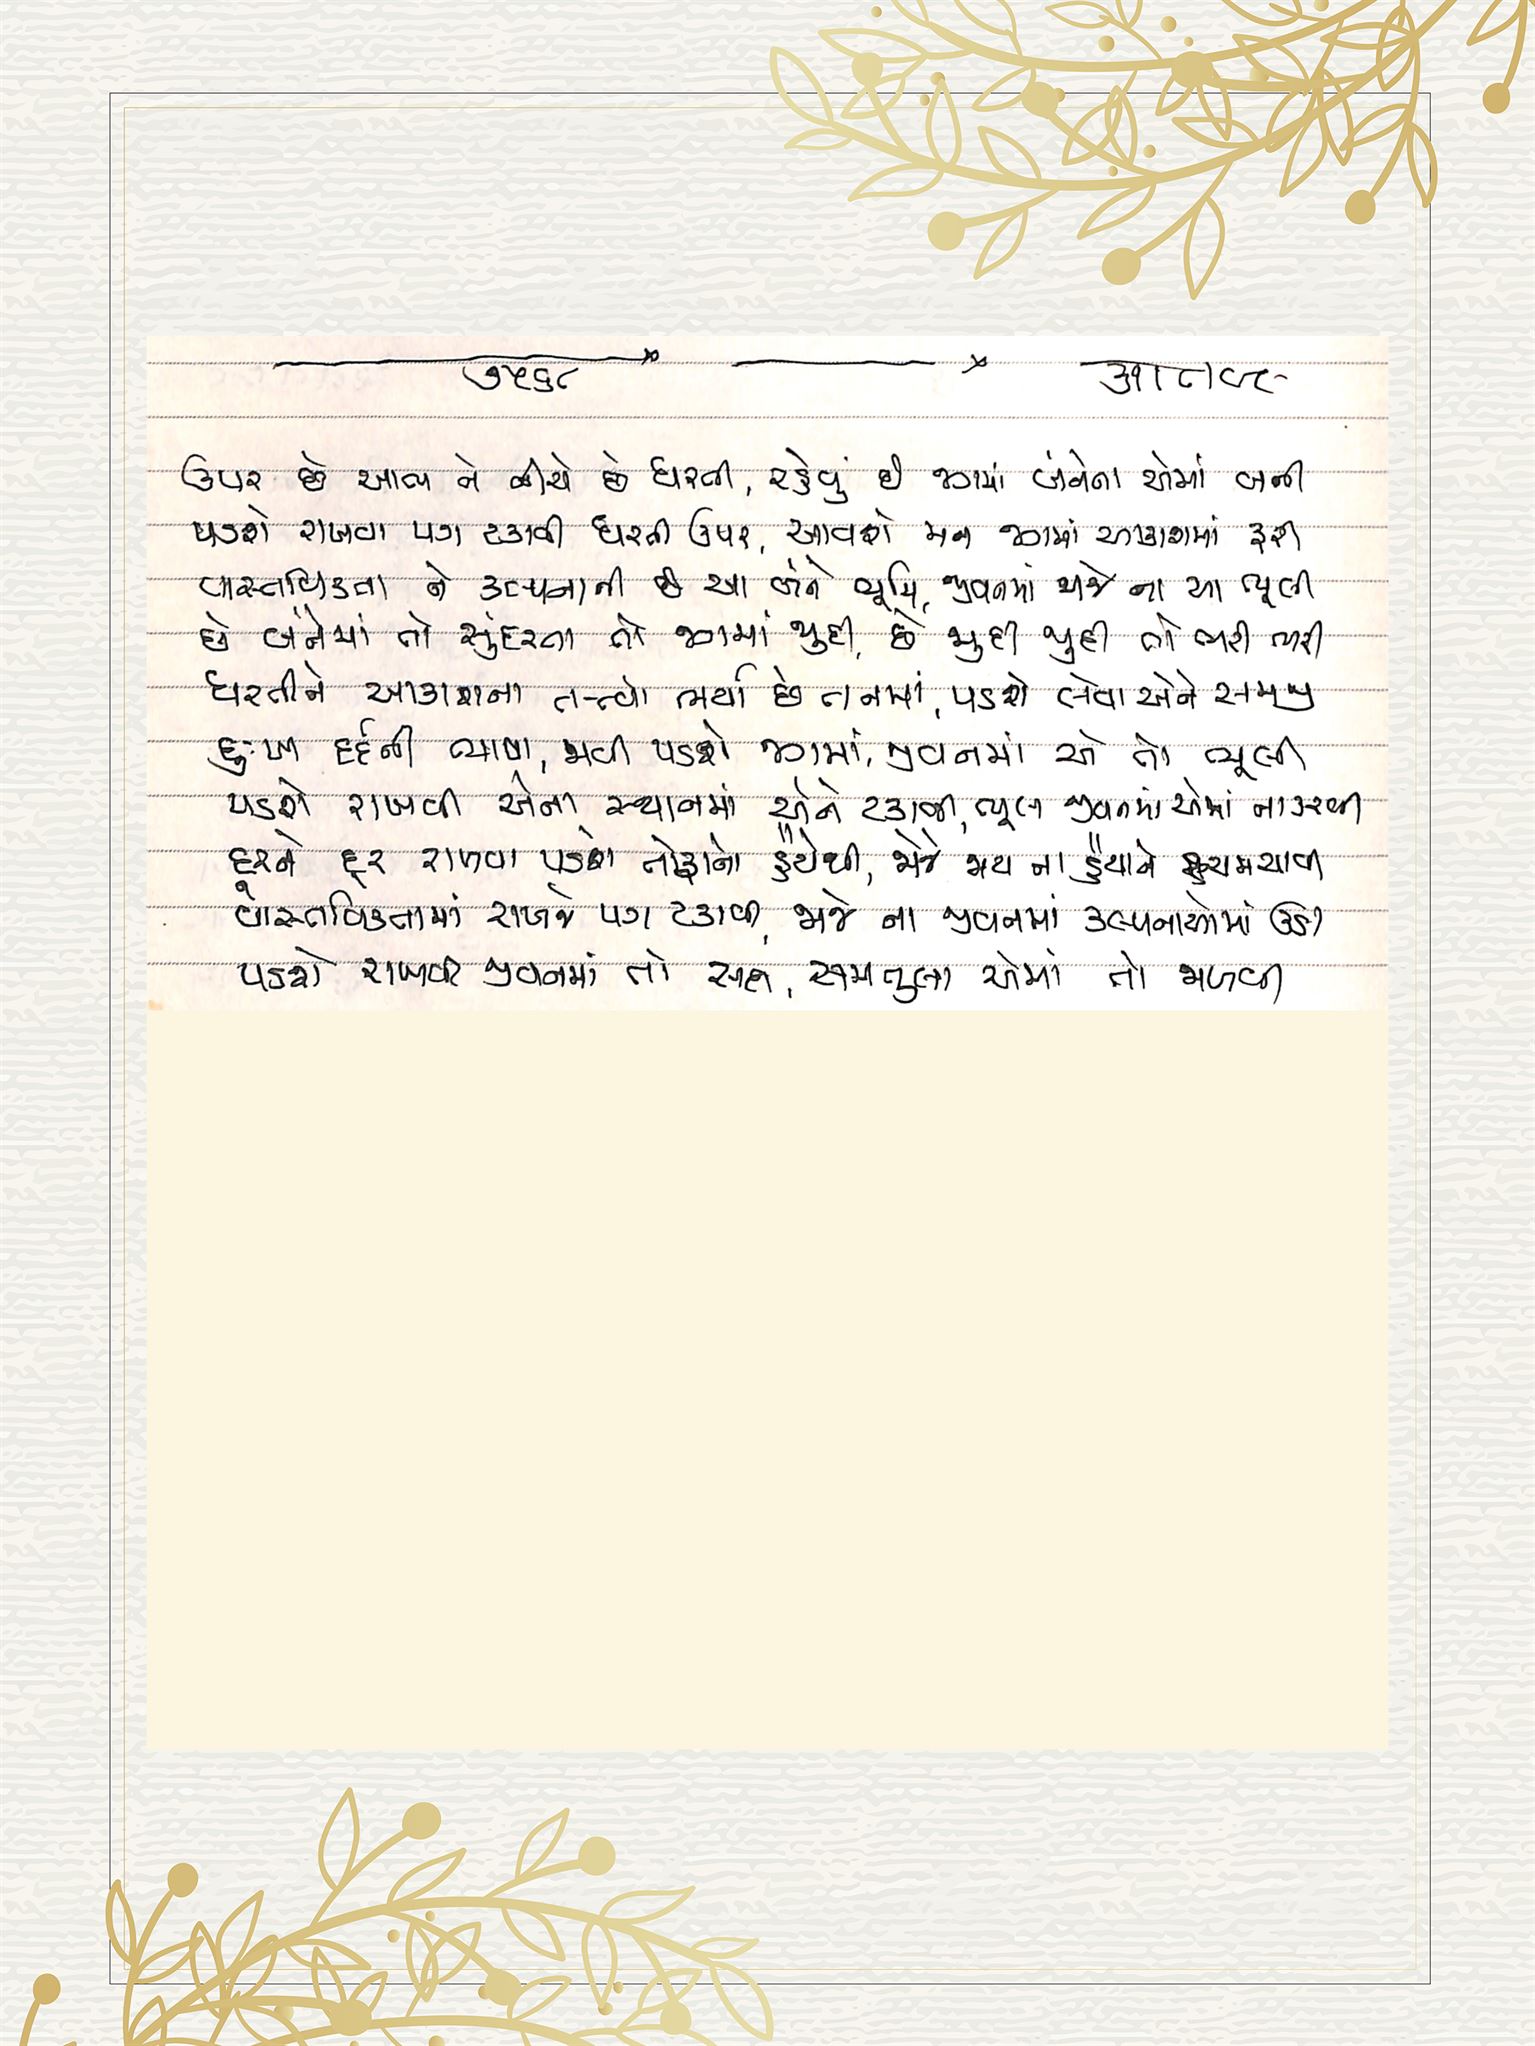 ૭૫૬૮
ઉપર છે આભ ને નીચે છે ધરતી, રહેવું છે જગમાં બંનેના એમાં બની
પડશે રાખવા પગ ટકાવી ધરતી ઉપર, આવશે મન જગમાં આકાશમાં ફરી
વાસ્તવિકતા ને કલ્પનાની છે આ બંને ભૂમિ, જીવનમાં જાજે ના આ ભૂલી
છે બંનેમાં તો સુંદરતા તો જગમાં જુદી, છે જુદી જુદી તો ભરી ભરી
ધરતીને આકાશના તત્ત્વો ભર્યા છે તનમાં, પડશે લેવા એને સમજી
દુઃખ દર્દની ભાષા, જાવી પડશે જગમાં, જીવનમાં એ તો ભૂલી
પડશે રાખવી એના સ્થાનમાં એને ટકાવી, ભૂલ જીવનમાં એમાં ના કરવી
દૂરને દૂર રાખવા પડશે તોફાનો હૈયેથી, જોજે જાય ના હૈયાને હચમચાવી
વાસ્તવિકતામાં રાખજે પગ ટકાવી, જાજે ના જીવનમાં કલ્પનાઓમાં ઊડી
પડશે રાખવી જીવનમાં તો સદા, સમતુલા એમાં તો જાળવી